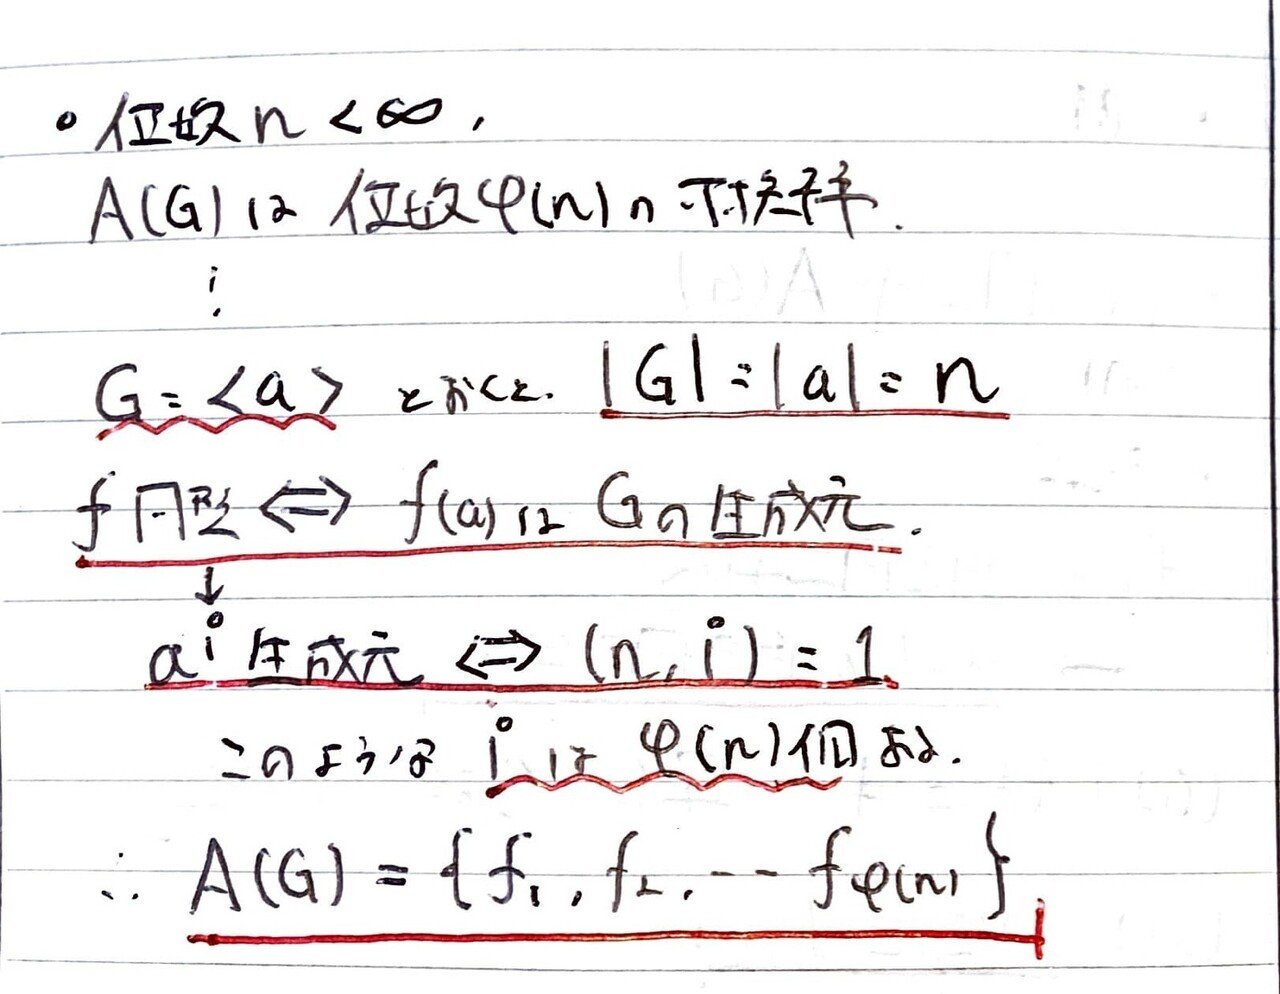 • 位数 n < ∞ ,
A(G) は 位数 φ(n) の 可換群.
⋮
G = <a> とおくと. |G| = |a| = n
f 同形 ⇔ f(a) は G の 生成元.
↓
a^i 生成元 ⇔ (n, i) = 1
このような i は φ(n) 個ある.
∴ A(G) = {f₁, f₂, --- f_φ(n)}